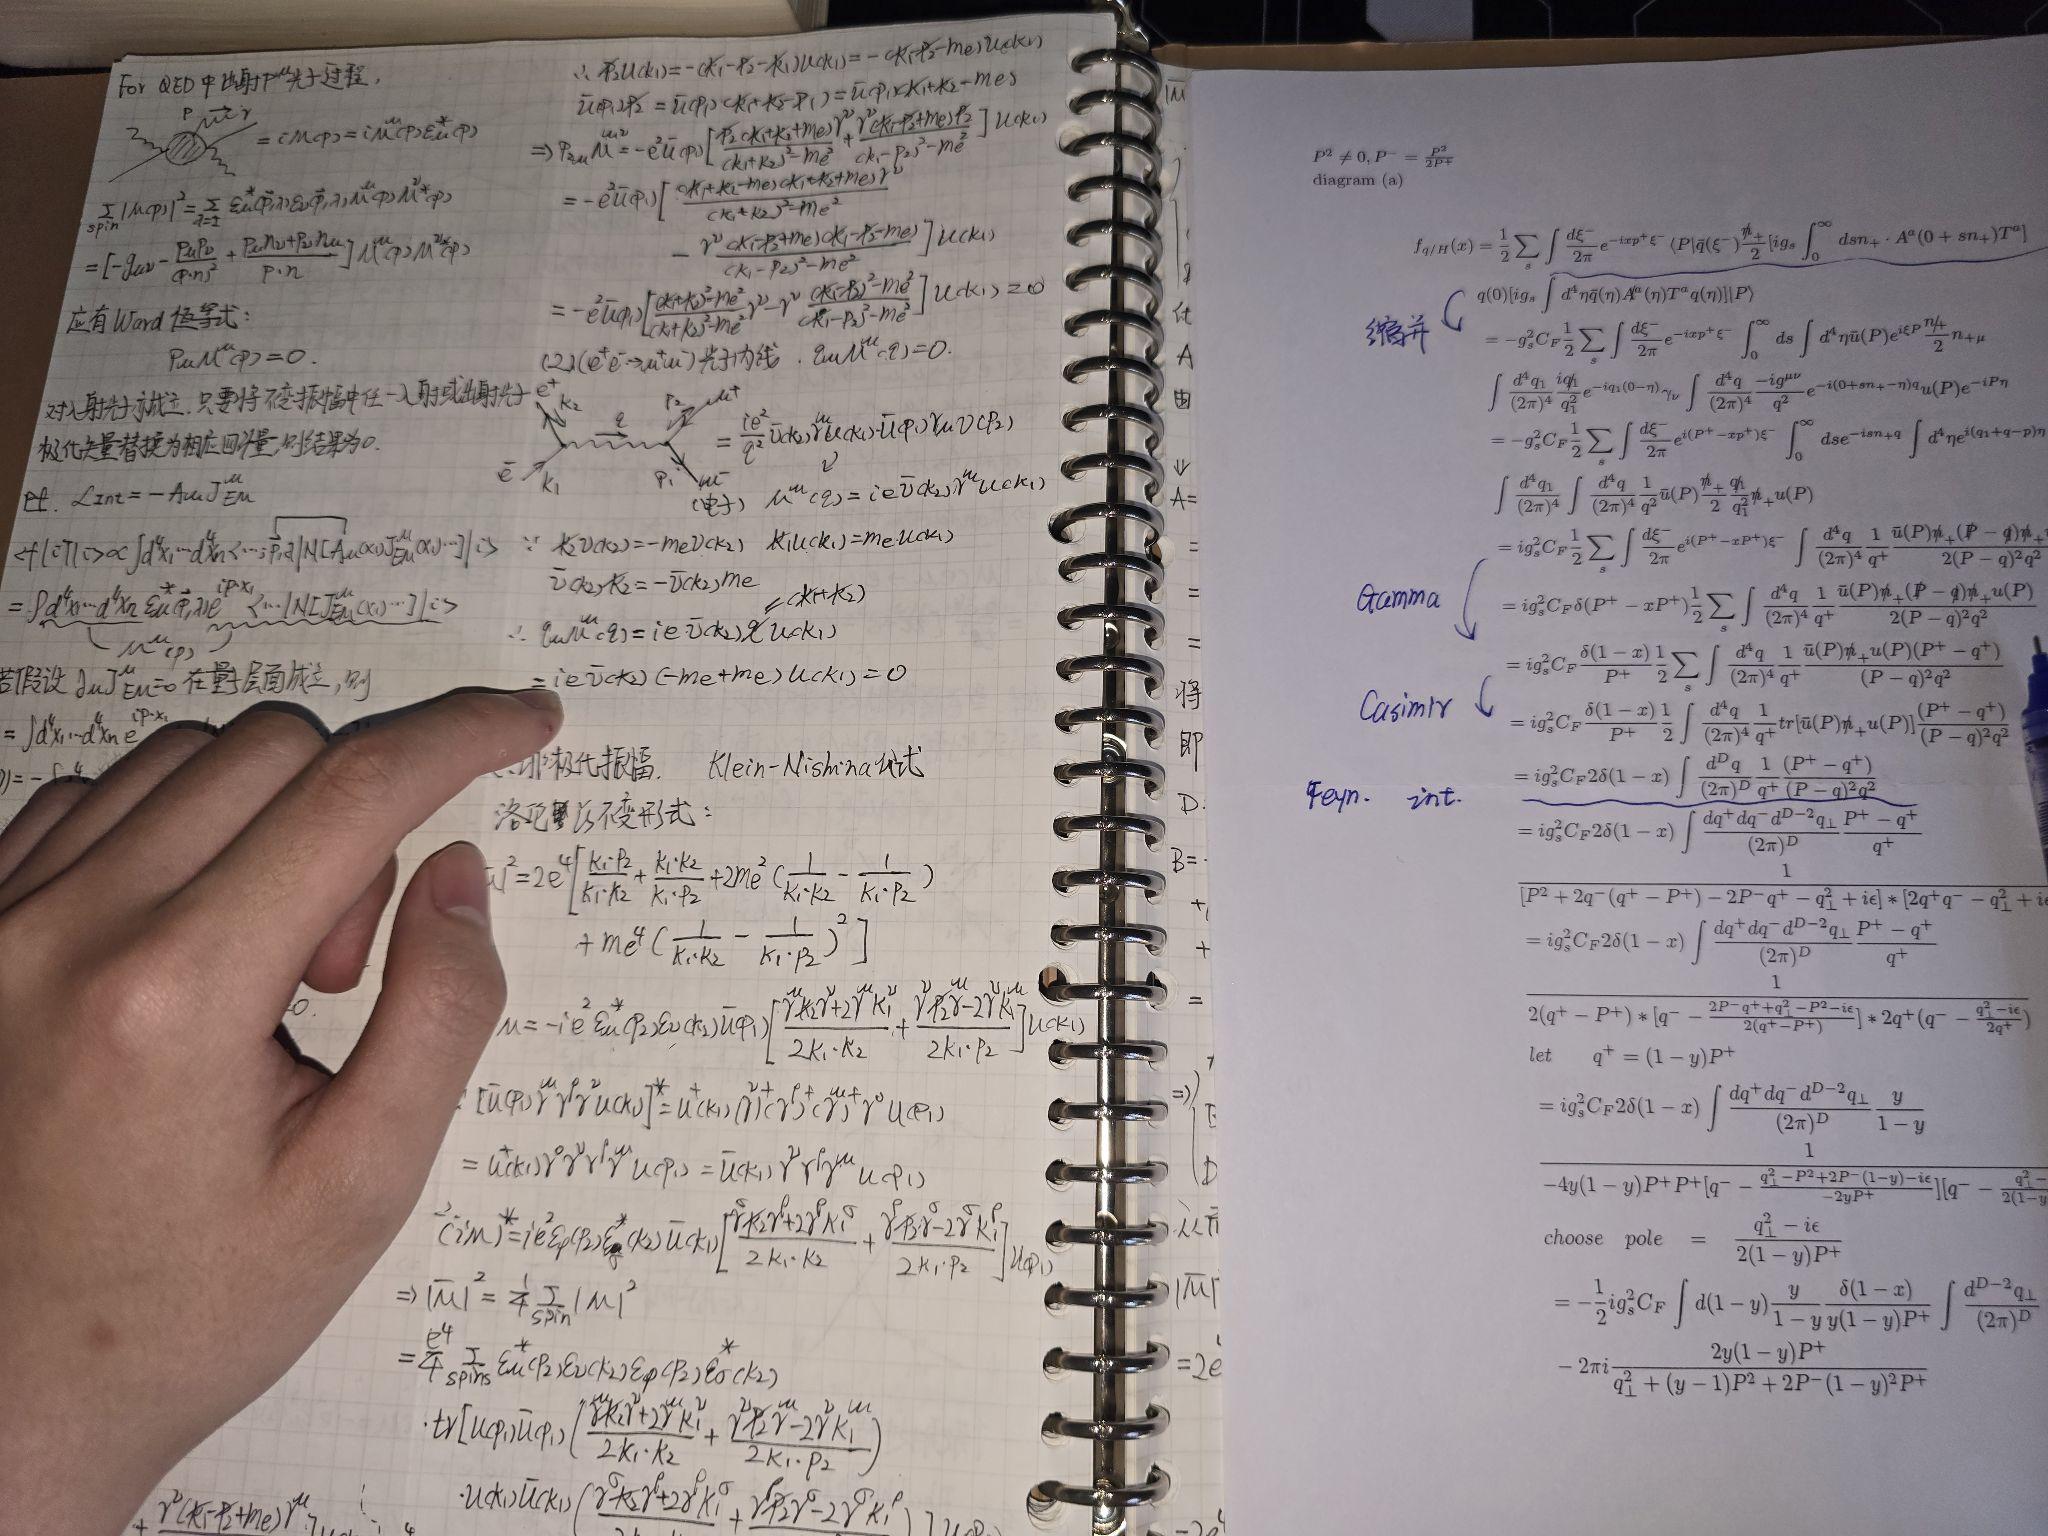 For QED中出射P^μ光子过程,
P → γ
= iM(p) = iM^μ(p)ε*_μ(p)
Σ_spin |M(p)|² = Σ_{λ=±} ε*_μ(p⃗,λ)ε_ν(p⃗,λ)M^μ(p)M^ν*(p)
= [-g_μν - P_μP_ν/(p·n)² + (P_μn_ν+P_νn_μ)/(p·n)] M^μ(p)M^ν*(p)
应有Ward恒等式:
P_μM^μ(p)=0.
对入射光子亦成立.只要将不变振幅中任一入射或出射光子
极化矢量替换为相应四动量,则结果为0.
Pf. L_Int = -A_μJ^μ_EM
<f|iT|i> ∝ ∫d⁴x₁…d⁴x_n <…;p⃗,λ|N[A_μ(x₁)J^μ_EM(x₁)…]|i>
= ∫d⁴x₁…d⁴x_n ε*_μ(p⃗,λ)e^{ip·x₁} <…|N[J^μ_EM(x₁)…]|i>
M^μ(p)
若假设 ∂_μJ^μ_EM=0 在量子层面成立,则
= ∫d⁴x₁…d⁴x_n e^{ip·x₁}
∴ p̸₂u(k₁) = -(k̸₁-p̸₂-k̸₁)u(k₁) = -(k̸₁-p̸₂-me)u(k₁)
ū(p₁)p̸₂ = ū(p₁)(k̸₁+k̸₂-p̸₁) = ū(p₁)(k̸₁+k̸₂-me)
⇒ P_{2μ}M^{μν} = -e²ū(p₁)[p̸₂(k̸₁+k̸₂+me)γ^ν/((k₁+k₂)²-me²) + γ^ν(k̸₁-p̸₂+me)p̸₂/((k₁-p₂)²-me²)]u(k₁)
= -e²ū(p₁)[(k̸₁+k̸₂-me)(k̸₁+k̸₂+me)γ^ν/((k₁+k₂)²-me²)
- γ^ν(k̸₁-p̸₂+me)(k̸₁-p̸₂-me)/((k₁-p₂)²-me²)]u(k₁)
= -e²ū(p₁)[((k₁+k₂)²-me²)/((k₁+k₂)²-me²) γ^ν - γ^ν ((k₁-p₂)²-me²)/((k₁-p₂)²-me²)]u(k₁) = 0
(2)(e⁺e⁻→μ⁺μ⁻)光子内线. q_μM^μ(q)=0.
e⁺ k₂ q p₂ μ⁺
= ie²/q² v̄(k₂)γ^μu(k₁)·ū(p₁)γ_μv(p₂)
e⁻ k₁ p₁ μ⁻
(电子) M^μ(q) = ie v̄(k₂)γ^μu(k₁)
∵ k̸₂v(k₂) = -me v(k₂) k̸₁u(k₁) = me u(k₁)
v̄(k₂)k̸₂ = -v̄(k₂)me
(k̸₁+k̸₂)
∴ q_μM^μ(q) = ie v̄(k₂)q̸u(k₁)
= ie v̄(k₂)(-me+me)u(k₁) = 0
极化振幅. Klein-Nishina公式
洛伦兹不变形式:
² = 2e⁴[k₁·p₂/k₁·k₂ + k₁·k₂/k₁·p₂ + 2me²(1/k₁·k₂ - 1/k₁·p₂)
+ me⁴(1/k₁·k₂ - 1/k₁·p₂)²]
M = -ie²ε*_μ(p₂)ε_ν(k₂)ū(p₁)[(γ^μk̸₂γ^ν+2γ^μk₁^ν)/2k₁·k₂ + (γ^νp̸₂γ^μ-2γ^νk₁^μ)/2k₁·p₂]u(k₁)
[ū(p₁)γ^μγ^ργ^νu(k₁)]* = u⁺(k₁)(γ^ν)⁺(γ^ρ)⁺(γ^μ)⁺γ⁰u(p₁)
= u⁺(k₁)γ⁰γ^νγ^ργ^μu(p₁) = ū(k₁)γ^νγ^ργ^μu(p₁)
(iM)* = ie²ε_ρ(p₂)ε*_σ(k₂)ū(k₁)[(γ^σk̸₂γ^ρ+2γ^ρk₁^σ)/2k₁·k₂ + (γ^ρp̸₂γ^σ-2γ^σk₁^ρ)/2k₁·p₂]u(p₁)
⇒ |M̄|² = 1/4 Σ_spin |M|²
= e⁴/4 Σ_spins ε*_μ(p₂)ε_ν(k₂)ε_ρ(p₂)ε*_σ(k₂)
·tr[u(p₁)ū(p₁)((γ^μk̸₂γ^ν+2γ^μk₁^ν)/2k₁·k₂ + (γ^νp̸₂γ^μ-2γ^νk₁^μ)/2k₁·p₂)
·u(k₁)ū(k₁)(γ^σk̸₂γ^ρ+2γ^ρk₁^σ + γ^ρp̸₂γ^σ-2γ^σk₁^ρ
+ γ^ν(k̸₁-p̸₂+me)γ^μ
P² ≠ 0, P⁻ = P²/2P⁺
diagram (a)
f_{q/H}(x) = 1/2 Σ_s ∫ dξ⁻/2π e^{-ixp⁺ξ⁻} ⟨P|q̄(ξ⁻) n̸₊/2 [ig_s ∫₀^∞ dsn₊ · A^a(0 + sn₊)T^a]
q(0)[ig_s ∫ d⁴η q̄(η)A̸^a(η)T^a q(η)]|P⟩
缩并
= -g_s²C_F 1/2 Σ_s ∫ dξ⁻/2π e^{-ixp⁺ξ⁻} ∫₀^∞ ds ∫ d⁴η ū(P)e^{iξP} n̸₊/2 n_{+μ}
∫ d⁴q₁/(2π)⁴ iq̸₁/q₁² e^{-iq₁(0-η)} γ_ν ∫ d⁴q/(2π)⁴ -ig^{μν}/q² e^{-i(0+sn₊-η)q} u(P)e^{-iPη}
= -g_s²C_F 1/2 Σ_s ∫ dξ⁻/2π e^{i(P⁺-xp⁺)ξ⁻} ∫₀^∞ dse^{-isn₊q} ∫ d⁴ηe^{i(q₁+q-p)η}
∫ d⁴q₁/(2π)⁴ ∫ d⁴q/(2π)⁴ 1/q² ū(P) n̸₊/2 q̸₁/q₁² n̸₊u(P)
= ig_s²C_F 1/2 Σ_s ∫ dξ⁻/2π e^{i(P⁺-xP⁺)ξ⁻} ∫ d⁴q/(2π)⁴ 1/q⁺ ū(P)n̸₊(P̸ - q̸)n̸₊/2(P - q)²q²
Gamma
= ig_s²C_F δ(P⁺ - xP⁺) 1/2 Σ_s ∫ d⁴q/(2π)⁴ 1/q⁺ ū(P)n̸₊(P̸ - q̸)n̸₊u(P)/2(P - q)²q²
= ig_s²C_F δ(1 - x)/P⁺ 1/2 Σ_s ∫ d⁴q/(2π)⁴ 1/q⁺ ū(P)n̸₊u(P)(P⁺ - q⁺)/(P - q)²q²
Casimir
= ig_s²C_F δ(1 - x)/P⁺ 1/2 ∫ d⁴q/(2π)⁴ 1/q⁺ tr[ū(P)n̸₊u(P)] (P⁺ - q⁺)/(P - q)²q²
Feyn. int.
= ig_s²C_F 2δ(1 - x) ∫ d^Dq/(2π)^D 1/q⁺ (P⁺ - q⁺)/(P - q)²q²
= ig_s²C_F 2δ(1 - x) ∫ dq⁺dq⁻d^{D-2}q⊥/(2π)^D (P⁺ - q⁺)/q⁺
1/[P² + 2q⁻(q⁺ - P⁺) - 2P⁻q⁺ - q⊥² + iϵ] * [2q⁺q⁻ - q⊥² + iϵ
= ig_s²C_F 2δ(1 - x) ∫ dq⁺dq⁻d^{D-2}q⊥/(2π)^D (P⁺ - q⁺)/q⁺
1/2(q⁺ - P⁺) * [q⁻ - (2P⁻q⁺+q⊥²-P²-iϵ)/2(q⁺-P⁺)] * 2q⁺(q⁻ - (q⊥²-iϵ)/2q⁺)
let q⁺ = (1 - y)P⁺
= ig_s²C_F 2δ(1 - x) ∫ dq⁺dq⁻d^{D-2}q⊥/(2π)^D y/(1 - y)
1/-4y(1 - y)P⁺P⁺[q⁻ - (q⊥²-P²+2P⁻(1-y)-iϵ)/-2yP⁺][q⁻ -
choose pole = (q⊥² - iϵ)/2(1 - y)P⁺
= -1/2 ig_s²C_F ∫ d(1 - y) y/(1 - y) δ(1 - x)/y(1 - y)P⁺ ∫ d^{D-2}q⊥/(2π)^D
- 2πi 2y(1 - y)P⁺/(q⊥² + (y - 1)P² + 2P⁻(1 - y)²P⁺)